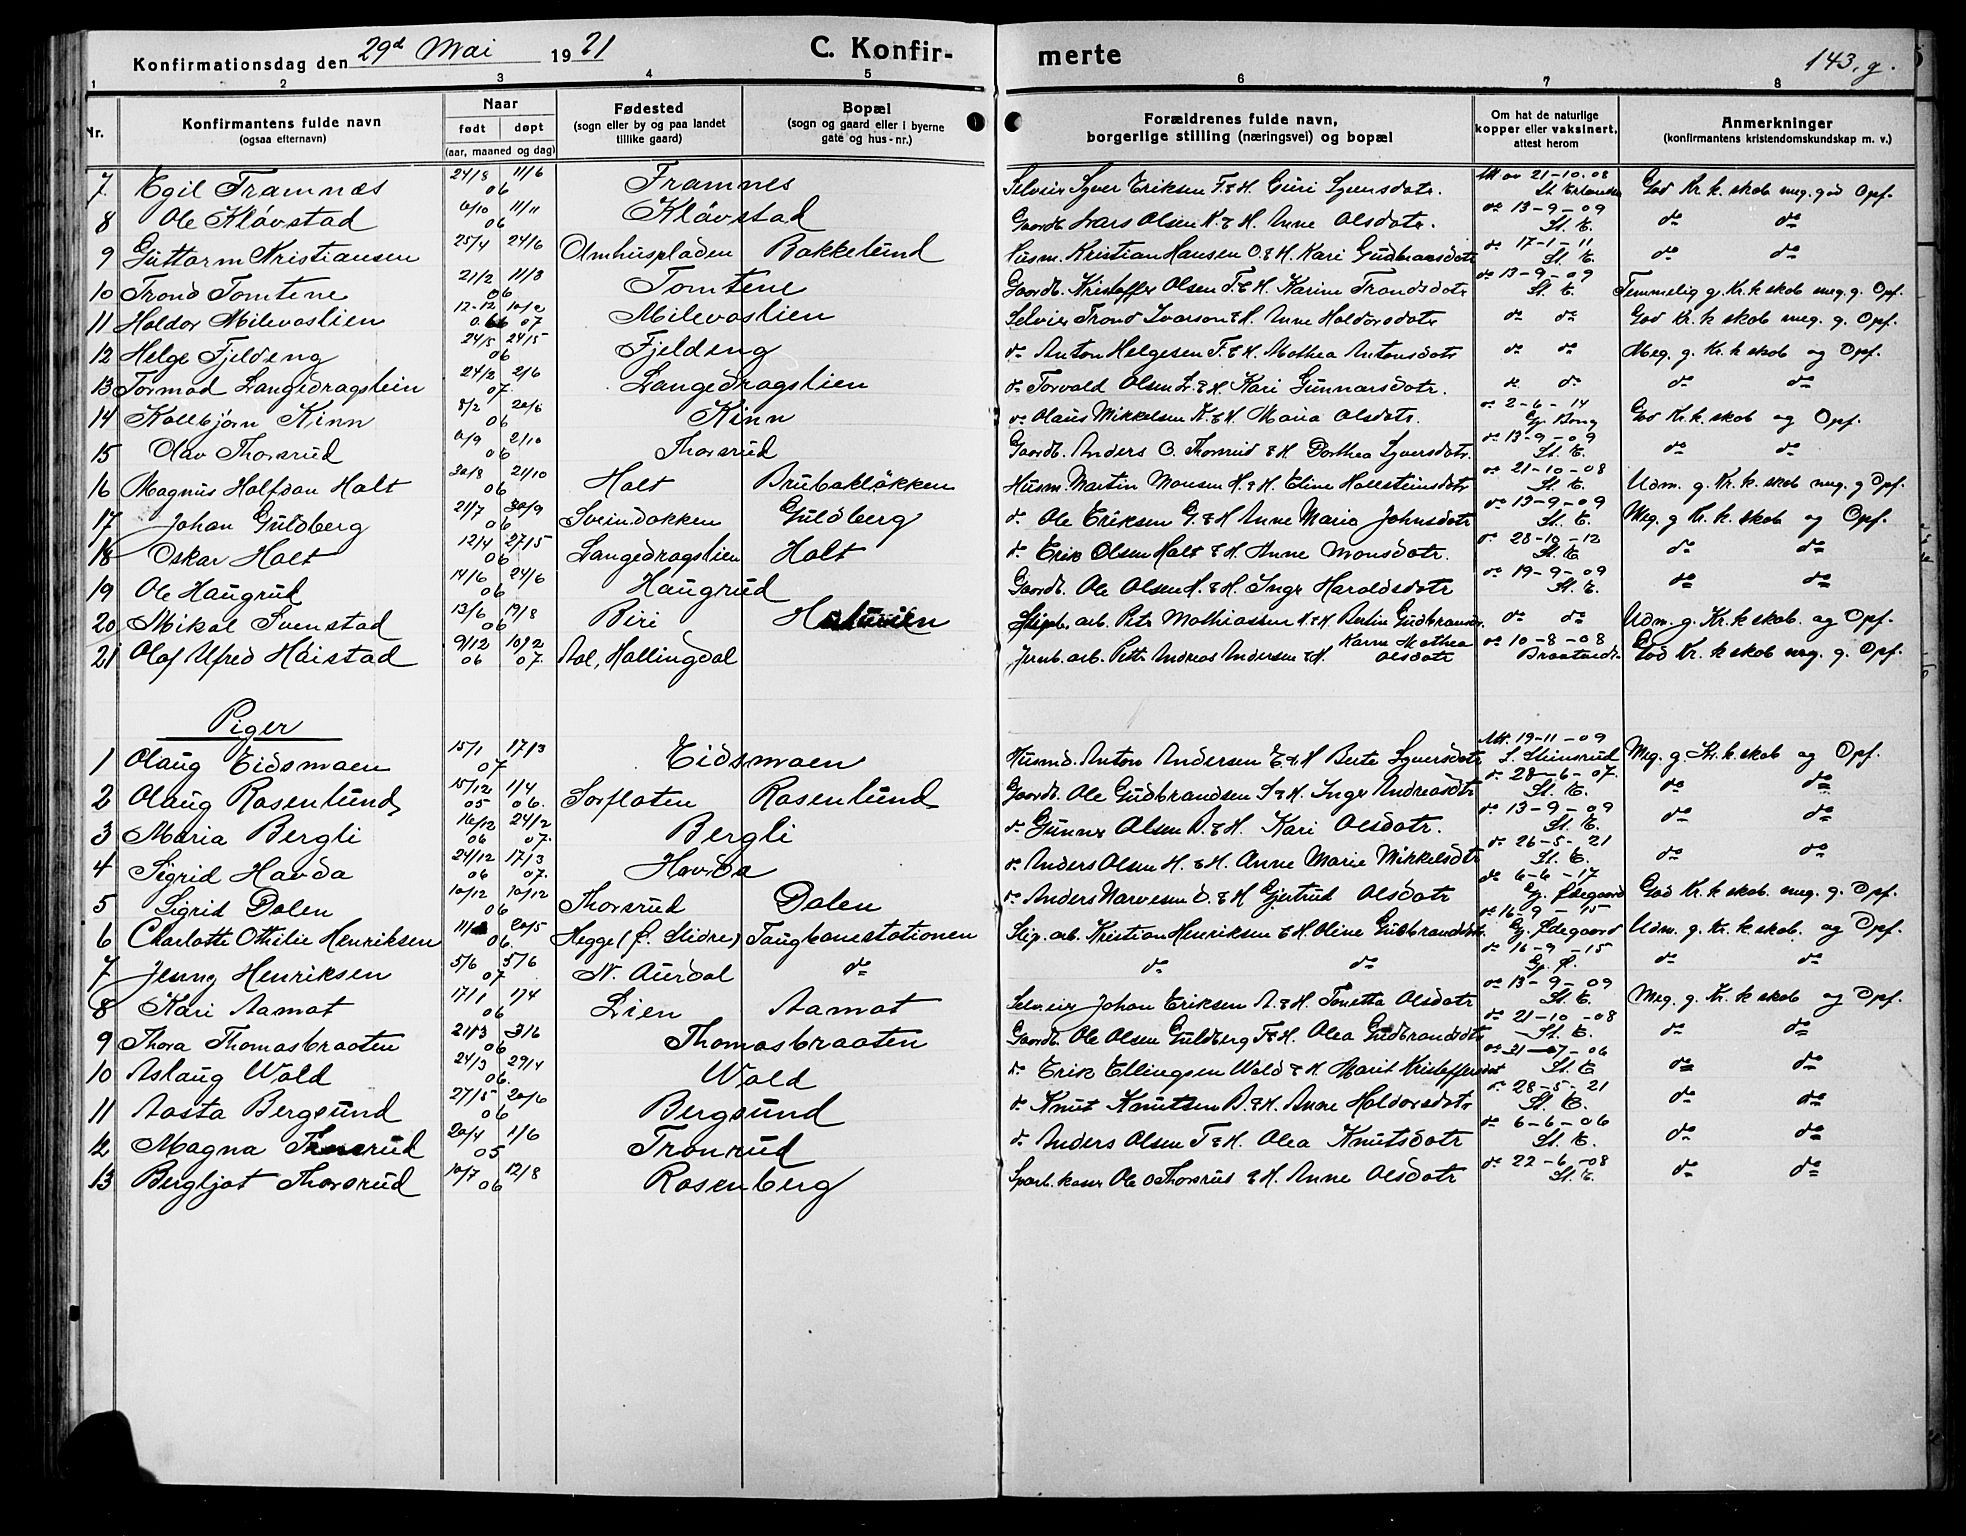 Konfirmationsdag den 29d Mai 1921 C. Konfir- merte 143, g.
1 2 3 4 5 6 7 8
Nr. Konfirmantens fulde navn (ogsaa efternavn) Naar født døpt (aar, maaned og dag) Fødested (sogn eller by og paa landet tillike gaard) Bopæl (sogn og gaard eller i byerne gate og hus-nr.) Forældrenes fulde navn, borgerlige stilling (næringsvei) og bopæl Om hat de naturlige kopper eller vaksinert, attest herom Anmerkninger (konfirmantens kristendomskundskap m. v.)
7 Egil Framnæs 24/8 11/6 06 Framnes Selveier Syver Eriksen F. & H. Guri Syversdatr. Att av 21-10-08 God Kr. k. skab meg. god Opf.
8 Ole Kløvstad 10/10 11/11 06 Kløvstad Gaardb. Lars Olsen K. & H. Anne Olsdatr. do 13-9-09 St. E. do do
9 Guttorm Kristiansen 25/4 24/6 Bakkelund Husm. Kristian Hansen O. & H. Kari Gudbransdatr do 17-1-11 St. E. do do
10 Trond Tomtene 21/2 11/3 06 Tomtene Gaardb. Kristoffer Olsen T. & H. Karine Trondsdatr do 13-9-09 St. E. Temmelig g. Kr. k skab meg. g. Opf.
11 Haldor Milevaslien 12-12 10/2 07 Milevaslien Selveier Trond Ivarson & H. Anne Haldorsdatr do do God Kr. k skab meg. g. Opf.
12 Helge Fjeldeng 24/5 06 Fjeldeng do Anton Helgesen F. & H. Mathea Antonsdatr do do Meg. g. Kr. k skab og Opf.
13 Tormod Langedragslein 24/2 2/6 07 Langedragslien do Torvald Olsen L. & H. Kari Gunnarsdatr. do do do do
14 Kolbjørn Kinn 8/2 20/6 06 Kinn do Olaus Mikkelsen K. & H. Maria Olsdatr. do 2-6-14 God Kr. k. skab og Opf.
15 Olav Thorsrud 10/9 2/10 06 Thorsrud Gaardb. Anders O. Thorsrud & H. Dorthea Syversdatr. do 13-9-09 St. E. do do
16 Magnus Halfdan Halt 30/8 21/10 06 Halt Brubakløkken Husm. Martin Monsen H. & H. Eline Hallsteinsdatr do 21-10-08 St. E. Udm. g. Kr. k. skab meg. g Opf.
17 Johan Guldberg 21/7 30/9 06 Sveindokken Guldberg do Ole Eriksen G. & H. Anne Maria Johnsdatr do 13-9-09 St. E. Meg. g Kr. k. skab og Opf.
18 Oskar Halt 12/4 27/5 06 Langedragslien Halt do Erik Olsen Halt & H. Anne Monsdatr. do 28-10-12 St. E. do do
19 Ole Haugrud 14/6 24/6 06 Haugrud Gaardb. Ole Olsen H. & H. Inge Haroldsdatr do 19-9-09 St. E. do do
20 Mikal Svenstad 13/6 19/8 06 Biri arb. Petr Mathiassen & H. do do Udm. g. Kr. k skab. og Opf.
21 Olaf Alfred Haistad 9/12 06 10/2 07. Aal, Hallingdal Jernb. arb. Petter Andreas Andersen & H. Karne Mathea Olsdatr do 10-8-08 God Kr. k skab meg. g. Opf.
Piger
1 Olaug Eidsmoen 15/1 17/3 07 Eidsmoen Husmd. Anton Andersen E. & H Berte Syversdatr Att. 19-11-09 S. Steinsrud Meg. g Kr. k skab og Opf.
2 Olaug Rosenlund 15/12 05 1/4 06. Sorflaten Rosenlund Gaardb. Ole Gudbrandsen & H. Inger Andreasdtr do 28-6-07. St. E. do do
3 Maria Bergli 16/12 06 24/2 07. Bergli do Gunner Olsen B. & H. Kari Olsdatr. do 13-9-09 St. E. do do
4 Sigrid Havda 24/12 06 17/3 07. Havda do Anders Olsen H. & H. Anne Marie Mikkelsdtr do 26-5-21 St. E. do do
5 Sigrid Dalen 10/12 10/12 06 Thorsrud Dalen do Anders Narvesen D. & H Gjertrud Olsdatr do 6-6-17 Gj. Ødegaard God Kr. k skab. meg. g. Opf.
6 Charlotte Othilie Henriksen 20/5 06. Hegge (Ø. Slidre) Taugbanestationen Slip. arb. Kristian Henriksen & H. Oline Gudbrandsdtr. do 16-9-15 Gj. Ødegaard Udm. g. Kr. k skab. og Opf.
7 Jenny Henriksen 5/6 5/6 07 N. Aurdal do do do do 16-9-15 Gj. Ø. do do
8 Kari Aamot 17/1 1/4 06 Lien Aamot Selveier Johan Eriksen A. & H. Tonetta Olsdatr do 13-9-09 St. E. Meg. g. Kr. k skab og Opf.
9 Thora Thomasbraaten 21/3 3/6 06 Thomasbraaten Gaardb. Ole Olsen Guldberg T. & H. Olea Gudbrandsdtr do 21-10-08 St. E. do do
10 Aslaug Wold 24/3 29/4 06. Wold do Erik Ellingsen Wold & H Marit Kristoffersdat do 21-07-06 St. E do do
11 Aasta Bergsund 27/15 20/6 06 Bergsund do Knut Knutsen B. & H. Anne Haldorsdatr do 28-5-21 St. E. do do
12 Magna Tronrud 20/4 1/6 05 Tronrud do Anders Olsen T & H. Olea Knutsdatr do 6-6-06 St. E. do do
13 Bergljot Thorsrud 10/7 12/8 06 Rosenberg Sparb. kaser Ole O Thorsrud & H. Anne Olsdatr do 22-6-08 St. E. do do